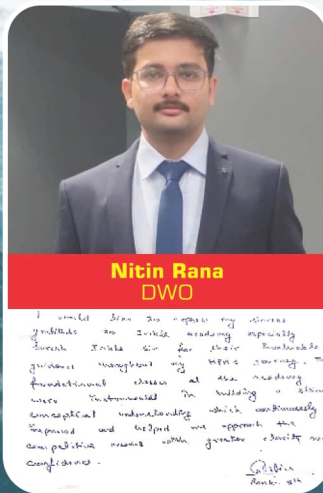 Nitin Rana
DWO
I would like to express my sincere
gratitude to academy especially
Suresh sir for their invaluable
guidance throughout my journey. 
foundational classes at the academy
were instrumental in building a
conceptual understanding which continuously
improved and helped me approach the
competitive with greater clarity
confidence.
Rank: